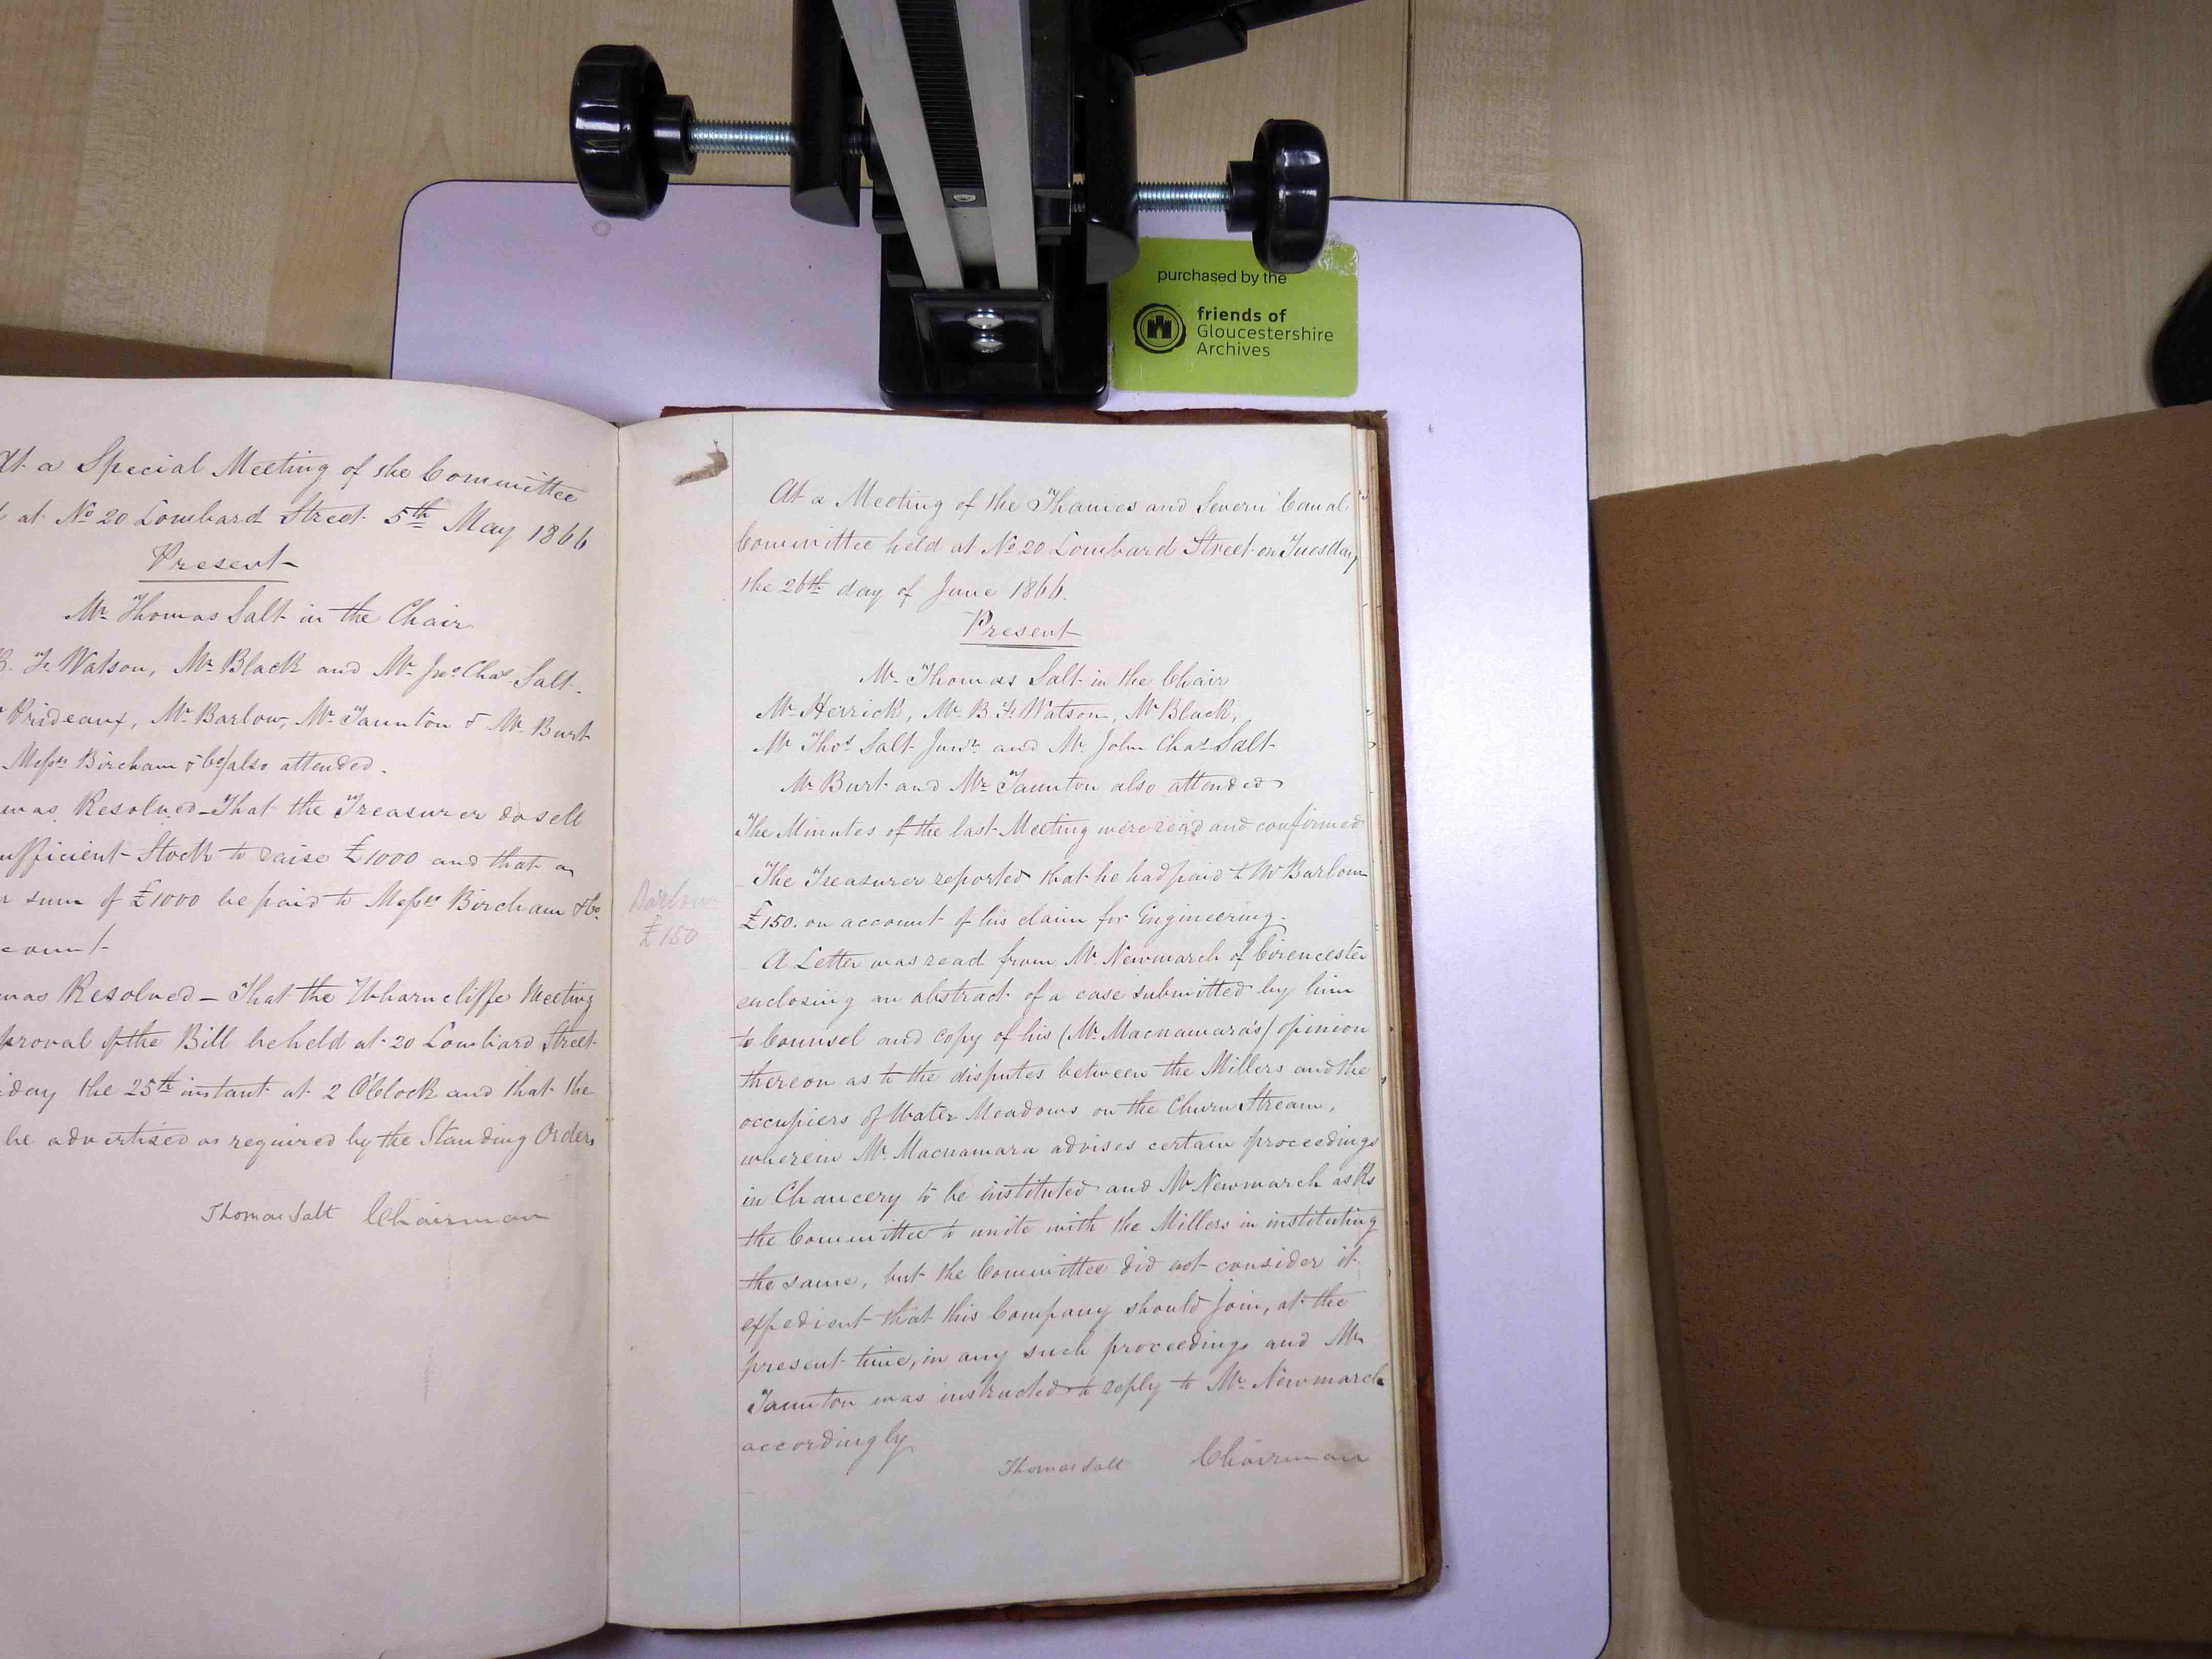 purchased by the
friends of
Gloucestershire
Archives
At a Special Meeting of the Committee
at No 20 Lombard Street 5th May 1866
Present
Mr Thomas Salt in the Chair
B. F. Watson, Mr Black and Mr Jno Chas Salt.
Prideaux, Mr Barlow, Mr Taunton & Mr Burt
Messrs Bircham & Co) also attended.
was Resolved – That the Treasurer do sell
sufficient Stock to raise £1000 and that a
sum of £1000 be paid to Messrs Bircham & Co.
count
was Resolved – That the Wharncliffe Meeting
proval of the Bill be held at 20 Lombard Street
day the 25th instant at 2 O'Clock and that the
be advertised as required by the Standing Orders
Thomas Salt Chairman
At a Meeting of the Thames and Severn Canal
Committee held at No 20 Lombard Street on Tuesday
the 26th day of June 1866.
Present
Mr Thomas Salt in the Chair
Mr Herrick, Mr B. F. Watson, Mr Black,
Mr Thos Salt Junr and Mr John Chas Salt
Mr Burt and Mr Taunton also attended
The Minutes of the last Meeting were read and confirmed
The Treasurer reported that he had paid to Mr Barlow
£150. on account of his claim for Engineering.
Barlow
£150
A Letter was read from Mr Newmarch of Cirencester
enclosing an abstract of a case submitted by him
to Counsel and copy of his (Mr Macnamara's) opinion
thereon as to the disputes between the Millers and the
occupiers of Water Meadows on the Churn Stream,
wherein Mr Macnamara advises certain proceedings
in Chancery to be instituted and Mr Newmarch asks
the Committee to unite with the Millers in instituting
the same, but the Committee did not consider it
expedient that this Company should join, at the
present time, in any such proceedings and Mr
Taunton was instructed to reply to Mr Newmarch
accordingly
Thomas Salt Chairman